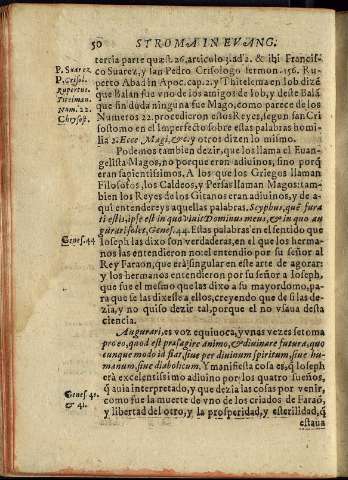 50 STROMA IN EVANG.
tercia parte quæst. 26. articulo 3. ad 2. & ibi Francis-
co Suarez, y san Pedro Crisologo sermon. 156. Ru-
perto Abad in Apoc. cap. 2. y Thitelema en Iob dizē
que Balàn fue vno de los amigos de Iob, y deste Balā
que sin duda ninguna fue Mago, como parece de los
Numeros 22. procedieron estos Reyes, segun san Cri
sostomo en el Imperfecto sobre estas palabras homi-
lia 2. Ecce Magi, &c. y otros dizen lo mismo.
P. Suarez.
P. Crisol.
Rupertus.
Titelman.
Num. 22.
Chrysost.
Podemos tambien dezir, que los llama el Euan-
gelista Magos, no porque eran adiuinos, sino porq̃
eran sapientissimos. A los que los Griegos llaman
Filosofos, los Caldeos, y Persas llaman Magos: tam-
bien los Reyes de los Gitanos eran adiuinos, y de a-
qui entendereys aquellas palabras. Scyphus, quē fura
ti estis, ipse est in quo bibit Dominus meus, & in quo au
gurari solet, Genes. 44. Estas palabras en el sentido que
Ioseph las dixo son verdaderas, en el que los herma-
nos las entendieron no: el entendio por su señor al
Rey Faraon, que erà singular en este arte de agorar:
y los hermanos entendieron por su señor a Ioseph,
que fue el mesmo que las dixo a su mayordomo, pa-
ra que se las dixesse a ellos, creyendo que de si las de-
zia, y no quiso dezir tal, porque el no vsaua desta
ciencia.
Genes. 44
Augurari, es voz equiuoca, y vnas vezes se toma
pro eo, quod est præsagire animo, & diuinare futura, quo
cunque modo id fiat, siue per diuinum spiritum, siue hu-
manum, siue diabolicum. Y manifiesta cosa es, q̃ Ioseph
erà excelentissimo adiuino por los quatro sueños,
q̃ auia interpretado, y que dezia las cosas por venir,
como fue la muerte de vno de los criados de Faraõ,
y libertad del otro, y la prosperidad, y esterilidad, q̃
Genes. 40.
& 41.
estaua